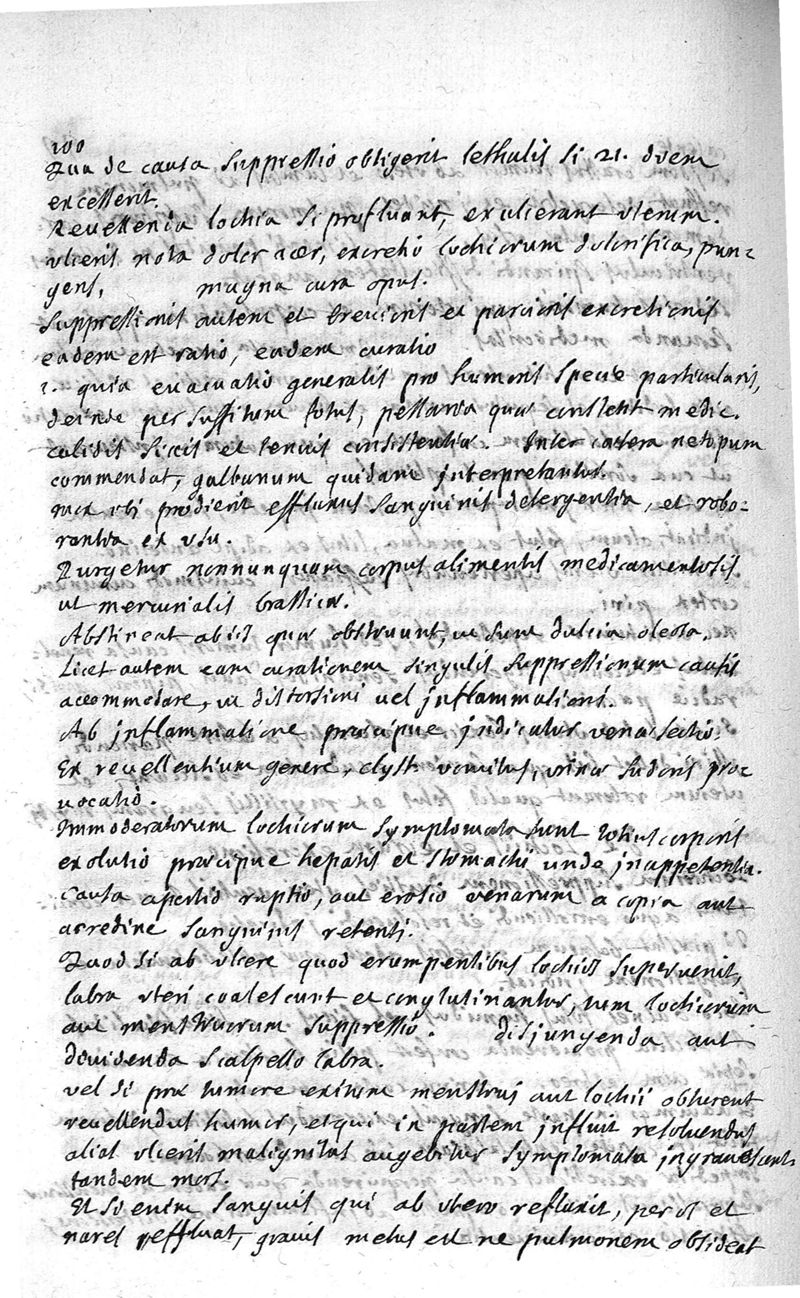 100
Qua de causa suppressio obtigerit lethalis si 21. diem
excesserit.
Revellenda lochia si profluant, exulcerant uterum.
ulceris nota dolor acer, excretio lochiorum dolorifica, pun=
gens, magna cura opus.
Suppressionis autem et brevioris et parcioris excretionis
eadem est ratio, eadem curatio
1. quia evacuatio generalis pro humoris specie particularis,
deinde per suffitum fotus, pessaria quae constent medic.
calidis siccis et tenuis consistentiae. Inter caetera netopum
commendat, galbanum quidam interpretantur.
mox ubi prodierit effluxus sanguinis detergentia, et robo=
rantia ex usu.
Purgetur nonnunquam corpus alimentis medicamentosis.
ut mercurialis brassicae.
Abstineat ab iis quae obstruunt, ut sunt dulcia oleosa.
Licet autem eam curationem singulis suppressionum causis
accommodare, ut distorsioni vel inflammationi.
Ab inflammatione praecipue indicatur venae sectio.
Ex revellentium genere, clyst. vomitus, urinae sudoris pro=
vocatio.
Immoderatorum lochiorum symptomata sunt totius corporis
exolutio praecipue hepatis et stomachi unde inappetentia.
Causa apertio ruptio, aut erosio venarum a copia aut
acredine sanguinis retenti.
Quod si ab ulcere quod erumpentibus lochiis supervenit,
labra uteri coalescunt et conglutinantur, tum lochiorum
aut menstruorum suppressio. disjungenda aut
dividenda scalpello labra.
vel si prae tumore exitum menstruis aut lochiis obturent
revellendus humor, et qui in partem influit resolvendus
alias ulceris malignitas augebitur symptomata ingravescent
tandem mors.
Et si enim sanguis qui ab utero refluxit, per os et
nares effluat, gravis metus est ne pulmonem obsideat